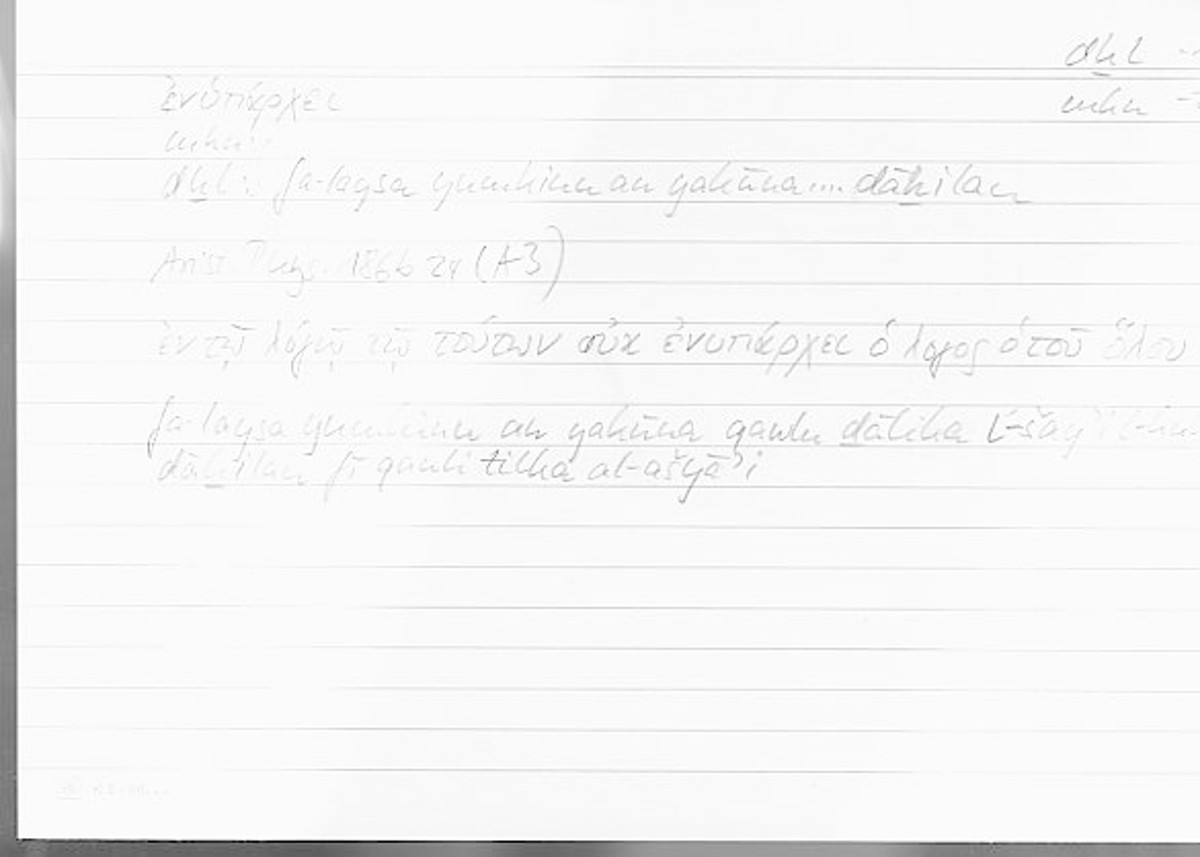 dḫl
mkn
ἐνυπάρχει
mkn:
dḫl: fa-laysa yumkinu an yakūna.... dāḫilan
Arist. Phys. 186b 24 (A3)
ἐν τῷ λόγῳ τῷ τούτων οὐκ ἐνυπάρχει ὁ λόγος ὁ τοῦ ὅλου
fa-laysa yumkinu an yakūna qawlu ḏālika l-šayʾi
dāḫilan fī qawli tilka al-ašyāʾi